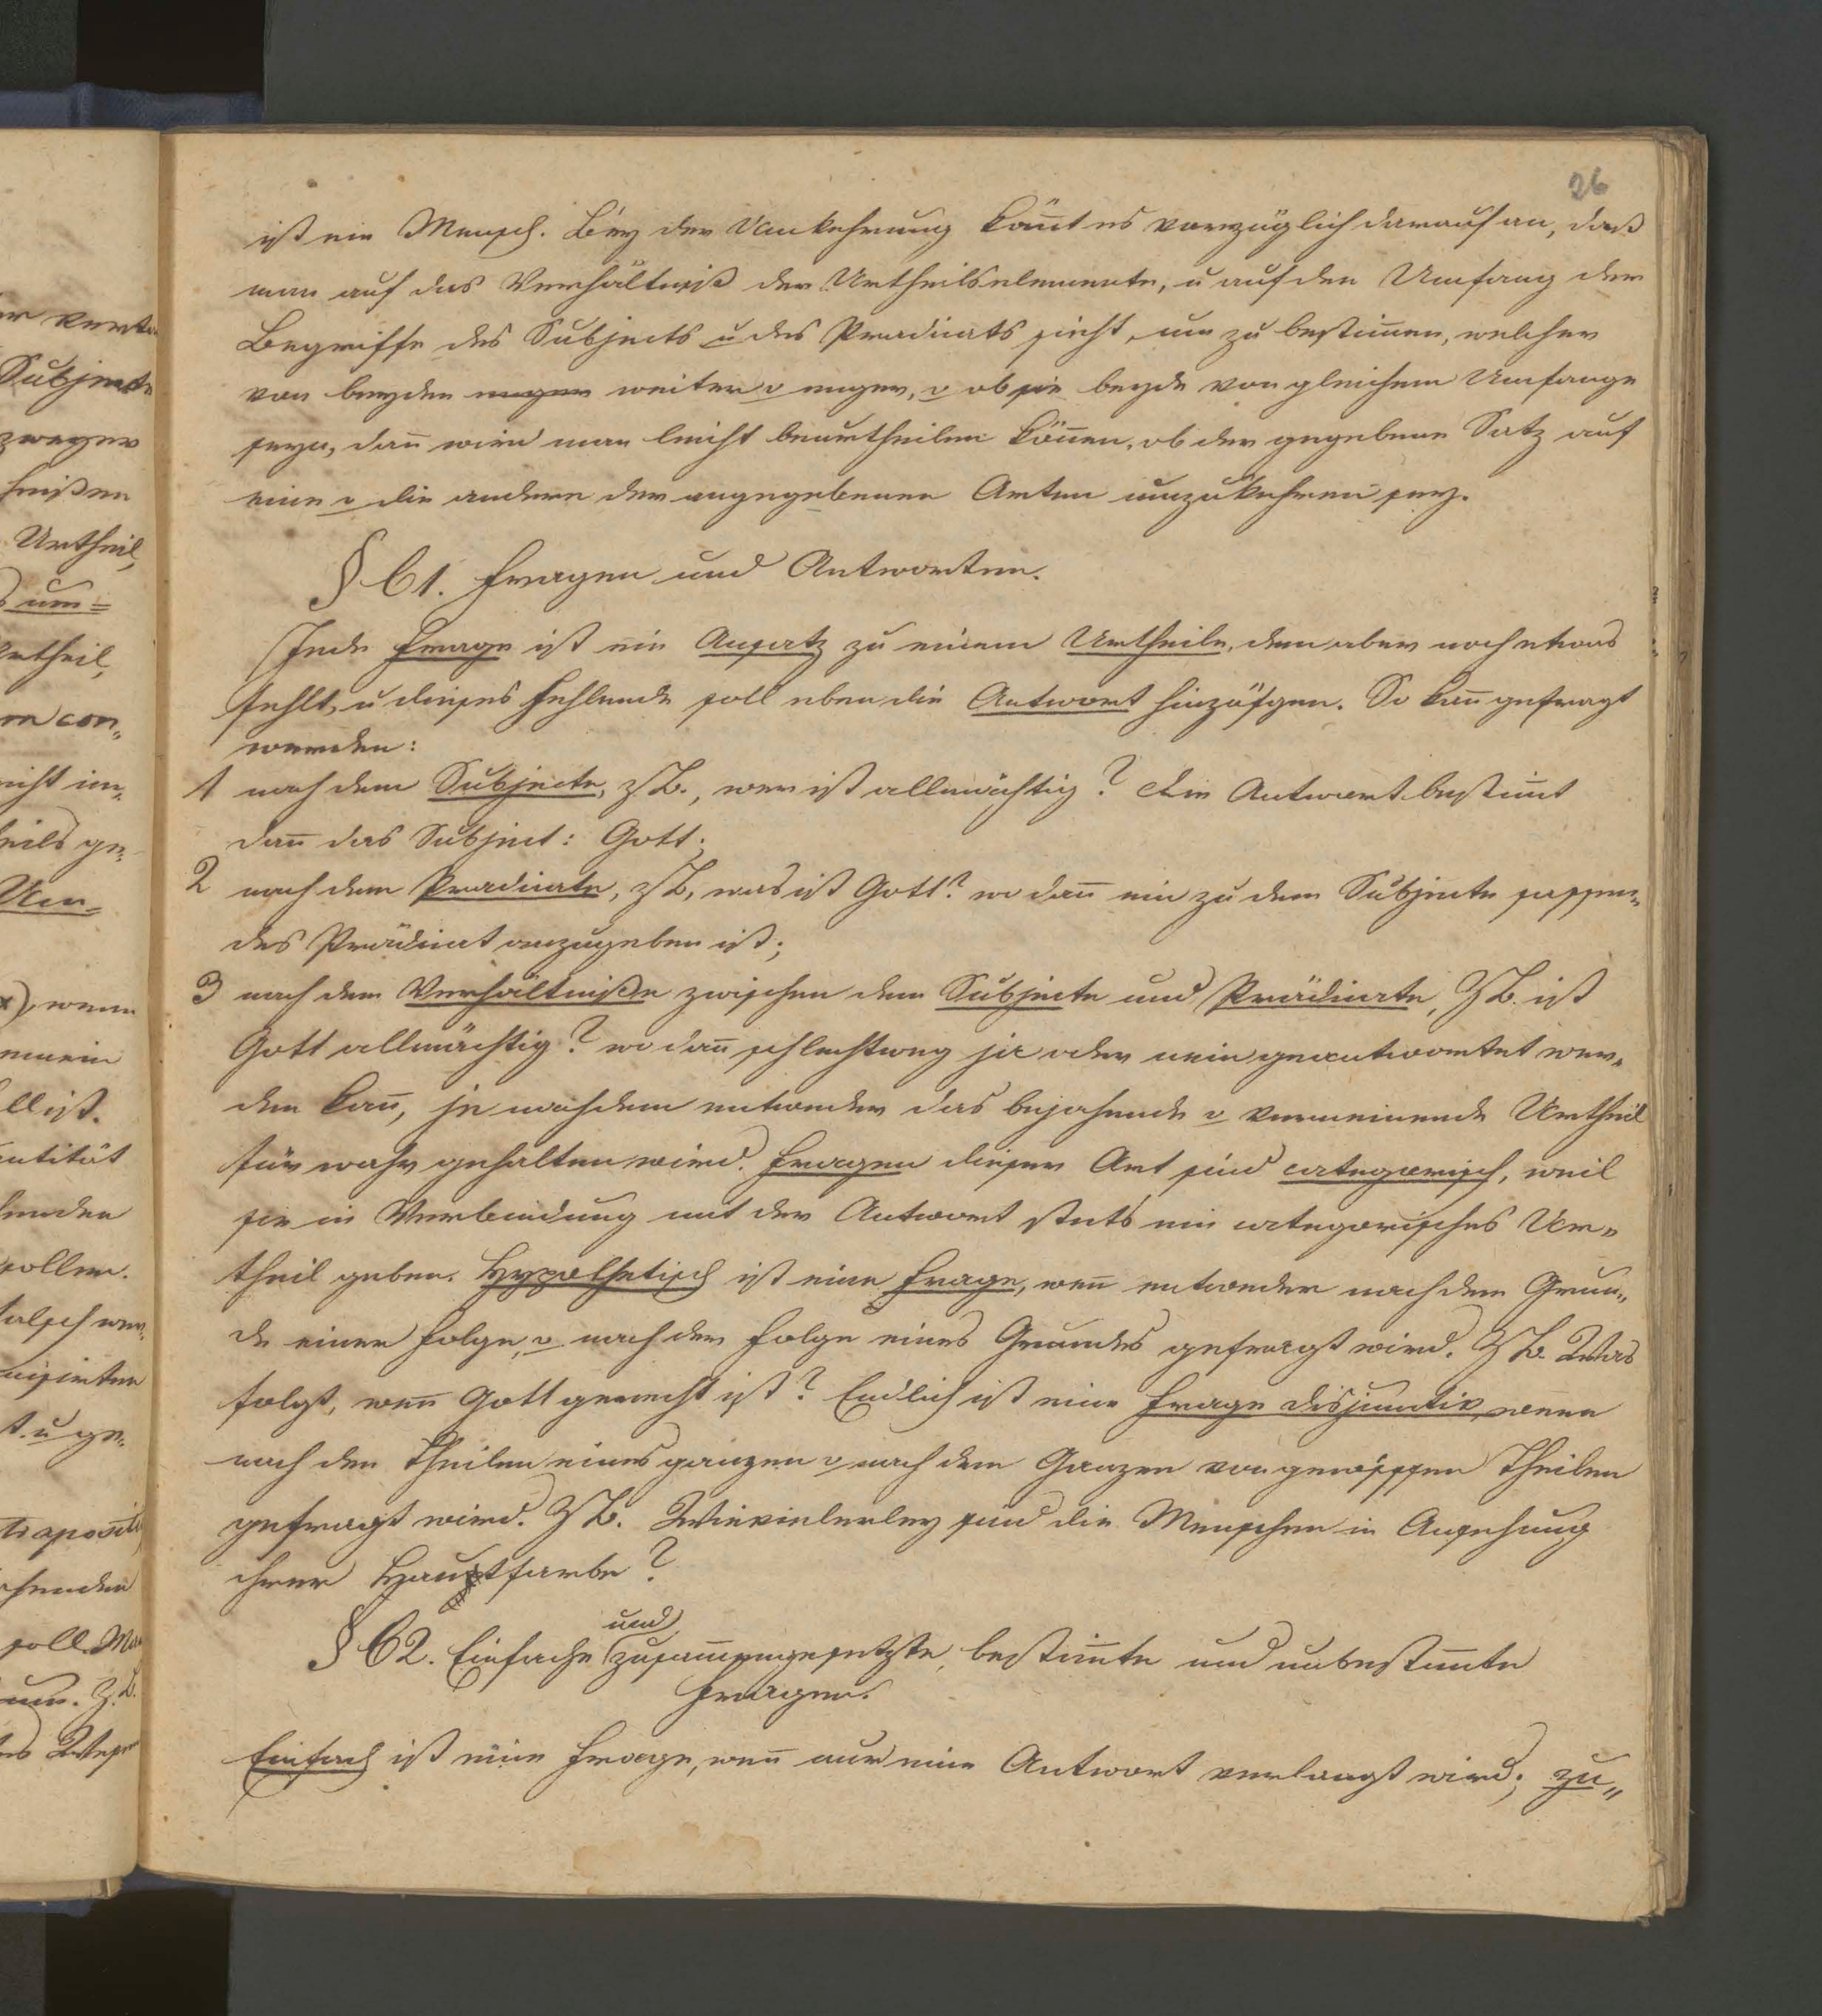 26
ist ein Mensch. Bey der Umkehrung kom̄t es vorzüglich darauf an, daß
man auf das Verhältniß der Urtheilselemente, u auf den Umfang der
Begriffe des Subjects u des Pradicats sieht, um zu bestim̄en, welcher
von beyden enger weiter o enger, o ob sie beyde von gleichem Umfange
seyn, dan̄ wird man leicht beurtheilen kön̄en, ob der gegebene Satz auf
eine o die andere der angegebenen Arten umzukehren sey.
§ 61. Fragen und Antworten.
Jede Frage ist ein Ansatz zu einem Urtheile, dem aber noch etwas
fehlt, u dieses Fehlende soll eben die Antwort hinzufügen. So kan̄ gefragt
werden:
1 nach dem Subjecte, z B., wer ist allmächtig? Die Antwort bestim̄t
dan̄ das Subject: Gott;
2 nach dem Pradicate, z B, was ist Gott? wo dan̄ ein zu dem Subjecte passen„
des Prädicat anzugeben ist;
3 nach dem Verhältniße zwischen dem Subjecte und Prädicate, Z B. ist
Gott allmächtig? wo dan̄ schlechtweg ja oder nein geantwortet wer„
den kan̄, je nachdem entweder das bejahende o verneinende Urtheil
für wahr gehalten wird. Fragen dieser Art sind categorisch, weil
sie in Verbindung mit der Antwort stets ein categorisches Ur„
theil geben. Hypothetisch ist eine Frage, wen̄ entweder nach dem Grun„
de einer Folge, o nach der Folge eines Grundes gefragt wird. Z B. Was
folgt, wen̄ Gott gerecht ist? Endlich ist eine Frage disjunctiv, wenn
nach den Theilen eines ganzen o nach dem Ganzen von gewissen Theilen
gefragt wird. Z B. Wievielerley sind die Menschen in Ansehung
ihrer Hauptfarbe?
§ 62. Einfache und zusam̄engesetzte, bestim̄te und unbestim̄te
Fragen.
Einfach ist eine Frage, wen̄ nur eine Antwort verlangt wird; zu„